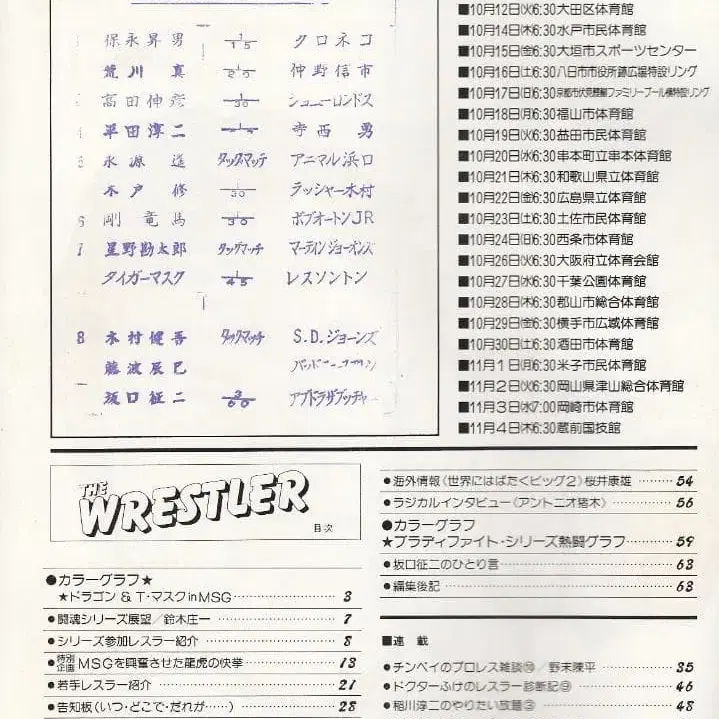 1 保永昇男 1/15 クロネコ
荒川 真 1/20 仲野信市
高田伸彦 1/30 ジョニーロンドス
4 平田淳二 寺西 勇
5 永源 遥 タッグマッチ アニマル浜口
木戸 修 1/30 ラッシャー木村
6 剛 竜馬 1/30 ボブオートンJR
7 星野勘太郎 タッグマッチ マーティンジョーンズ
タイガーマスク 1/45 レスソントン
8 木村健吾 タッグマッチ S.D.ジョーンズ
藤波辰巳
坂口征二 3/60 アブドラザブッチャー
■10月12日㈫6:30大田区体育館
■10月14日㈭6:30水戸市民体育館
■10月15日㈮6:30大垣市スポーツセンター
■10月16日㈯6:30八日市市役所跡広場特設リング
■10月17日㈰6:30京都市伏見桃山城ファミリープール横特設リング
■10月18日㈪6:30福山市体育館
■10月19日㈫6:30益田市民体育館
■10月20日㈬6:30串本町立串本体育館
■10月21日㈭6:30和歌山県立体育館
■10月22日㈮6:30広島県立体育館
■10月23日㈯6:30土佐市民体育館
■10月24日㈰6:30西条市体育館
■10月26日㈫6:30大阪府立体育会館
■10月27日㈬6:30千葉公園体育館
■10月28日㈭6:30郡山市総合体育館
■10月29日㈮6:30横手市広域体育館
■10月30日㈯6:30酒田市体育館
■11月1日㈪6:30米子市民体育館
■11月2日㈫6:30岡山県津山総合体育館
■11月3日㈬7:00岡崎市体育館
■11月4日㈭6:30蔵前国技館
THE WRESTLER
目次
●カラーグラフ★
★ドラゴン & T・マスクinMSG 3
●闘魂シリーズ展望/鈴木庄一 7
●シリーズ参加レスラー紹介 8
●特別企画 MSGを興奮させた龍虎の快挙 13
●若手レスラー紹介 21
●告知板(いつ・どこで・だれが……) 28
●海外情報〈世界にはばたくビッグ2〉桜井康雄 54
●ラジカルインタビュー〈アントニオ猪木〉 56
●カラーグラフ
★ブラディファイト・シリーズ熱闘グラフ 59
●坂口征二のひとり言 63
●編集後記 63
■連 載
●チンペイのプロレス雑談⑲/野末陳平 35
●ドクターふけのレスラー診断記⑨ 46
●稲川淳二のやりたい放題③ 48